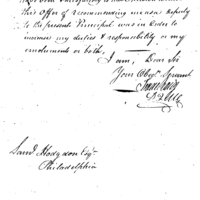 this Offer of recommending me as a Deputy
to the present Principal was in Order to
increase my duties & responsibility or my
emoluments or both,
I am, Dear Sir
Your Obt. Servant
Saml Hodgdon Esqr
Philadelphia